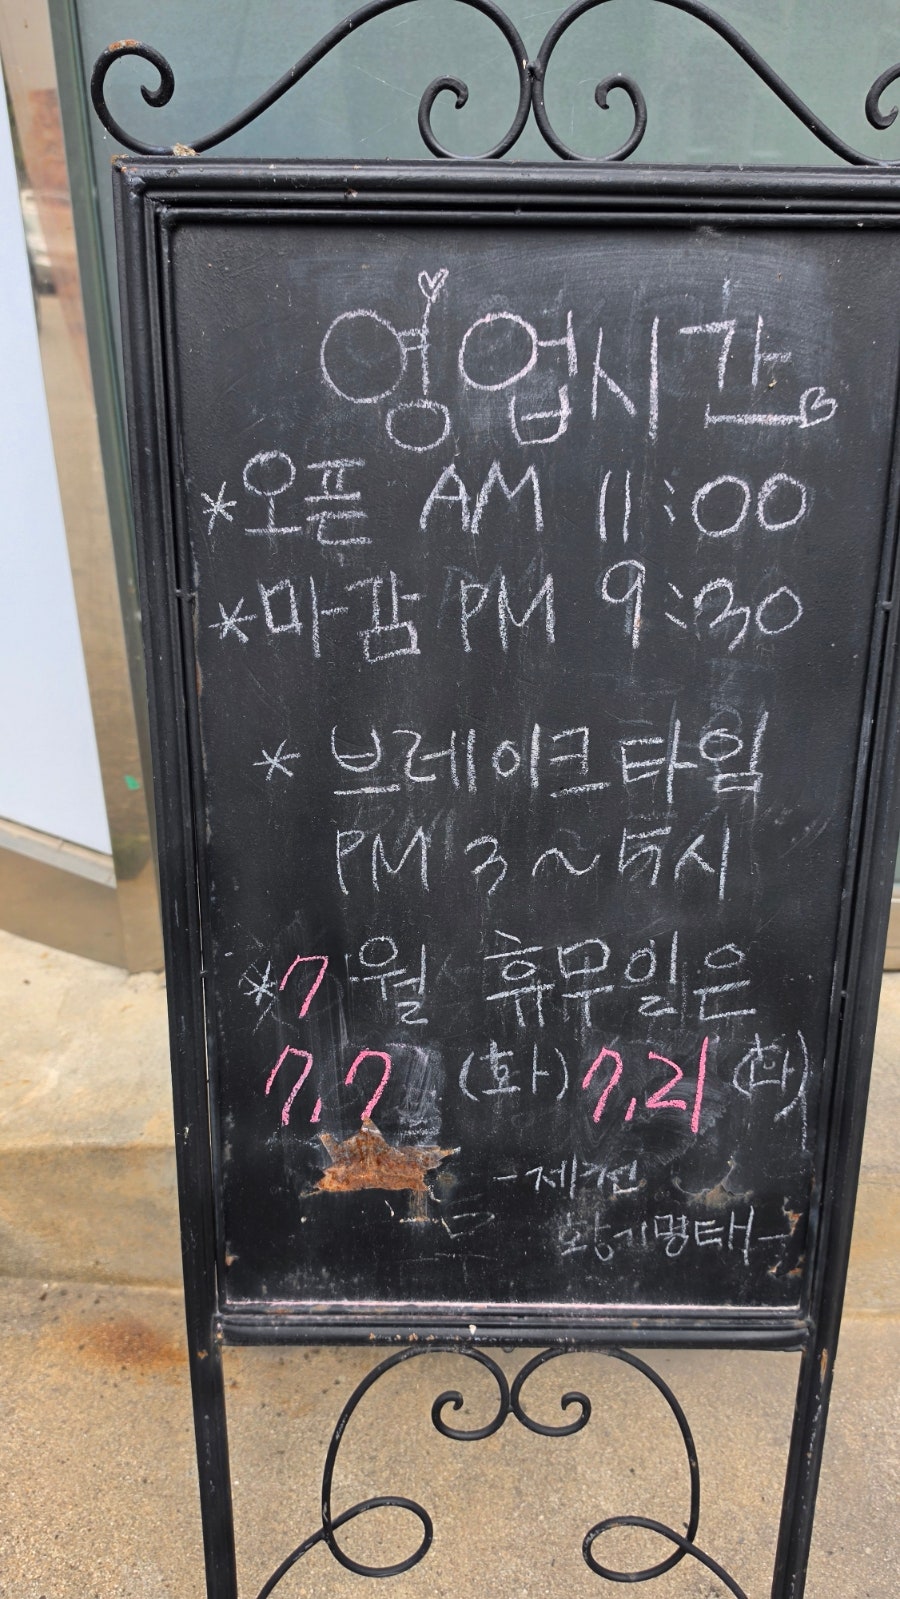 영업시간
*오픈 AM 11:00
*마감 PM 9:30
* 브레이크타임
PM 3~5시
*7월 휴무일은
7.7 (화) 7.21 (화)
-제천
황기명태-